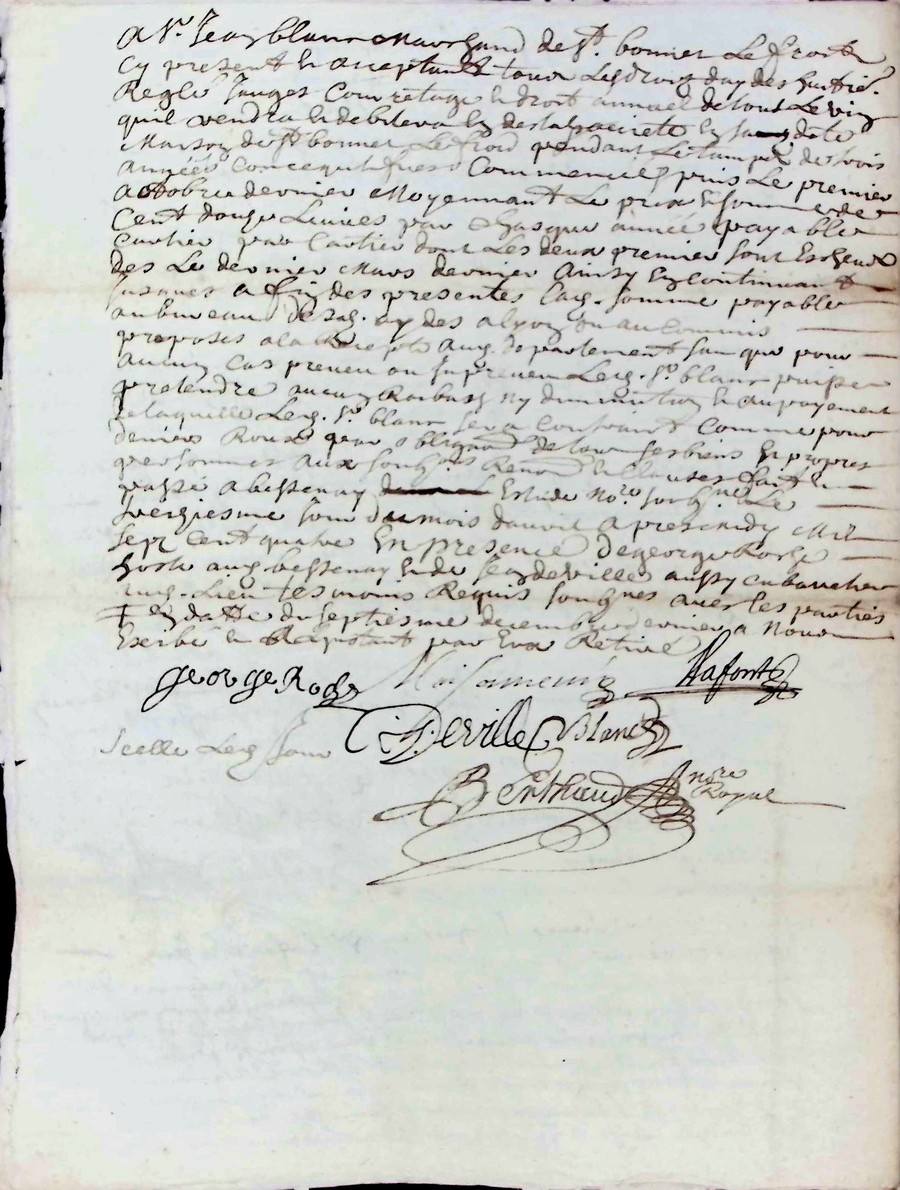 A Sr. Jean blanc Marchand de St. bonnet Le froid
Cy present & acceptant tous Les droits daydes huitie.
Reglé Jauges Courretage & droit annuel de tout Le vin
quil vendra & debitera en sa
Maison de St bonnet Le froid pendant Le temps de trois
années Concequtifves Commencées puis Le premier
octobre dernier Moyennant Le prix & somme de
Cent douze Livres par Chasque année payable
Cartier par Cartier dont Les deux premier sont Escheux
des Le dernier Mars dernier Ainsy En continuant
Jusques a fin des presentes Lad. somme payable
au bureau desd. aydes a Lyon ou au Commis
preposés a la Recepte aud. departement san que pour
aucun cas preveu ou Inpreveu Led. Sr. blanc puisse
pretendre aucun Rabais ny diminution & au payement
de laquelle Led. Sr. blanc sera Contraint Comme pour
deniers Royx par obligaon de tous ses biens En propres
personnes aux Renon & Clauses fait &
passé a bessenay Estude Nore. Le
vingiesme Jour du mois davril a presmidy Mil
sept cent quatre En presence de george Roche
hoste aud. bessenay & de Jean deville aussy cabaretier
aud. Lieu tesmoins Requis soubnes avec les parties
+ En datte du septiesme decembre dernier a Nous
Exibé & Raportant par Eux Retiré
george Roche Lafont
C Deville Blanc
Icelle Led Jour
Berthaud Nore
Royal